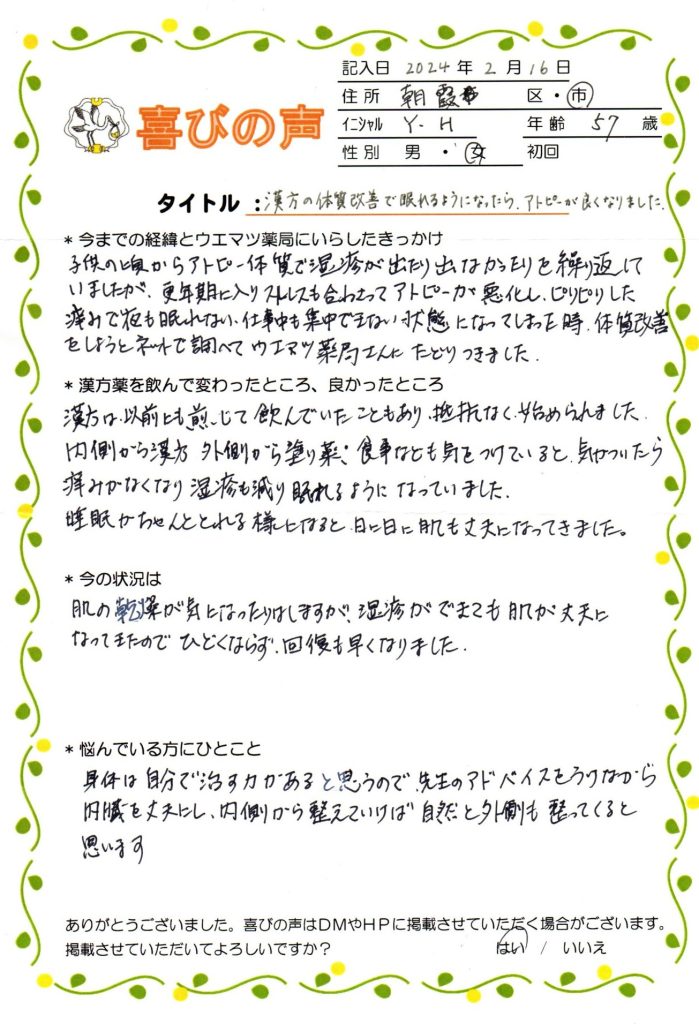 記入日 2024年2月16日
喜びの声
住所 朝霞市 区・市
イニシャル Y-H 年齢 57 歳
性別 男・女 初回
タイトル：漢方の体質改善で眠れるようになったら、アトピーが良くなりました。
*今までの経緯とウエマツ薬局にいらしたきっかけ
子供の頃からアトピー体質で湿疹が出たり出なかったりを繰り返して
いましたが、更年期に入りストレスも合わさってアトピーが悪化し、ピリピリした
痛みで夜も眠れない、仕事中も集中できない状態になってしまった時、体質改善
をしようとネットで調べてウエマツ薬局さんにたどりつきました。
*漢方薬を飲んで変わったところ、良かったところ
漢方は、以前にも煎じて飲んでいたこともあり、抵抗なく始められました。
内側から漢方 外側から塗り薬、食事なども気をつけていると、気がついたら
痒みがなくなり湿疹も減り眠れるようになっていました。
睡眠がちゃんととれる様になると、日に日に肌も丈夫になってきました。
*今の状況は
肌の乾燥が気になったりはしますが、湿疹がでまても肌が丈夫に
なってきたのでひどくならず、回復も早くなりました。
*悩んでいる方にひとこと
身体は自分で治す力があると思うので、先生のアドバイスをうけながら
内臓を丈夫にし、内側から整えていけば自然と外側も整ってくると
思います
ありがとうございました。喜びの声はDMやHPに掲載させていただく場合がございます。
掲載させていただいてよろしいですか？ はい / いいえ